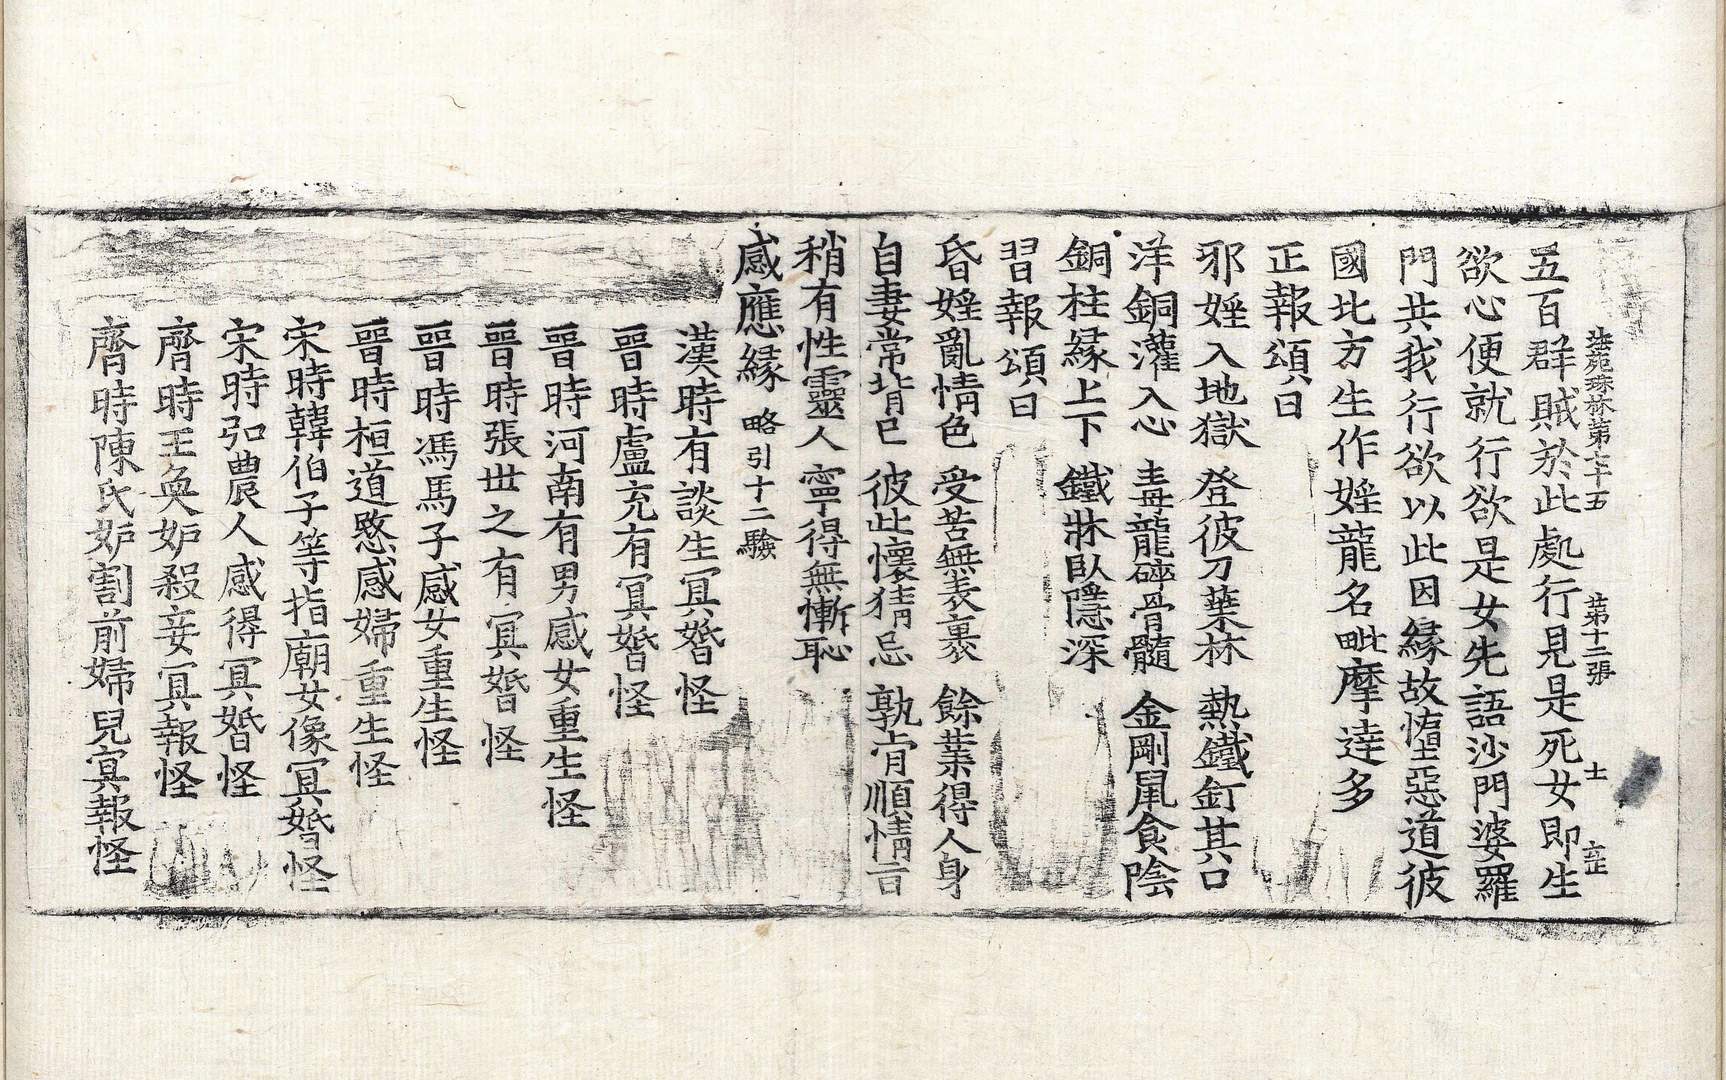 法苑珠林第七十五 第十二張 士 立正
五百群賊於此處行見是死女即生
欲心便就行欲是女先語沙門婆羅
門共我行欲以此因緣故憻惡道彼
國北方生作婬龍名毗摩達多
正報頌曰
邪婬入地獄 登彼刀葉林 熱鐵釘其口
洋銅灌入心 毒龍碎骨髓 金剛鼠食陰
銅柱緣上下 鐵牀臥隱深
習報頌曰
昏婬亂情色 受苦無表裹 餘業得人身
自妻常背已 彼此懷猜忌 孰肯順情旨
稍有性靈人 寧得無慚恥
感應緣 略引十二驗
漢時有談生冥婚怪
晉時盧充有冥婚怪
晉時河南有男感女重生怪
晉時張世之有冥婚怪
晉時馮馬子感女重生怪
晉時桓道愍感婦重生怪
宋時韓伯子等指廟女像冥婚怪
宋時弘農人感得冥婚怪
齊時王奐妒殺妾冥報怪
齊時陳氏妒割前婦兒冥報怪